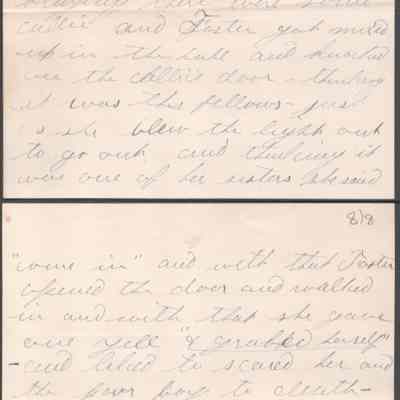 there were some
callie and Foster got mixed
up in the hall and knocked
one the callie's door - thinking
it was this fellows - just
as she blew the light out
to go out and thinking it
were one of her sisters she said
8/8
"come in" and with that Foster
opened the door and walked
in and with that she gave
one yell "& grabbed herself"
- and liked to scared her and
the poor boy to death -